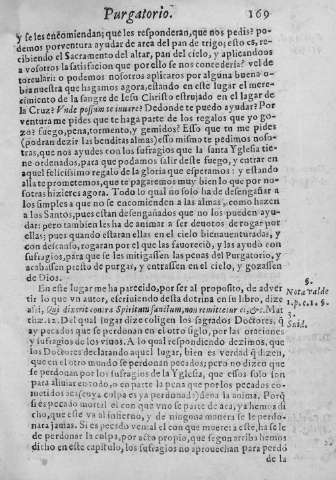 Purgatorio. 169
y se les encomiendan; que les responderan, que nos pedis? po-
demos por ventura ayudar de area del pan de trigo; esto es, re-
cibiendo el Sacramento del altar, pan del cielo, y aplicandoos
a vosotros la satisfacion que por ello se nos concederia? vel de
torculari: o podemos nosotros aplicaros por alguna buena o-
bra nuestra que hagamos agora, estando en este lugar el mere-
cimiento de la sangre de Iesu Christo estrujado en el lagar de
la Cruz? Vnde possum te iuuare? Dedonde te puedo ayudar? Por
ventura me pides que te haga parte de los regalos que yo go-
zo? fuego, pena, tormento, y gemidos? Esso que tu me pides
(podran dezir las benditas almas) esso mismo te pedimos noso-
tras, que nos ayudes con los sufragios que la santa Yglesia tie
ne ordenados, para que podamos salir deste fuego, y entrar en
aquel felicissimo regalo de la gloria que esperamos: y estando
alla te prometemos, que te pagaremos muy bien lo que por no-
sotras hizieres agora. Todo lo qual no solo ha de desengañar a
los simples a que no se encomienden a las almas, como hazen
a los Santos, pues estan desengañados que no los pueden ayu-
dar: pero tambien les ha de animar a ser deuotos de rogar por
ellas; pues quando estaran ellas en el cielo bienauenturadas, y
con descanso, rogaran por el que las fauorecio, y las ayudò con
sufragios, para que se les mitigassen las penas del Purgatorio, y
acabassen presto de purgar, y entrassen en el cielo, y gozassen
de Dios.
En este lugar me ha parecido, por ser al proposito, de aduer
tir lo que vn autor, escriuiendo desta dotrina en su libro, dize
assi, Qui dixerit contra Spiritum sanctum, non remittetur ei, &c. Mat
th. 12. Del qual lugar dize coligen los sagrados Doctores, q̃
ay pecados que se perdonan en el otro siglo, por las oraciones
y sufragios de los viuos. A lo qual respondiendo dezimos, que
los Doctores declarando aquel lugar, bien es verdad q̃ dizen,
que en el otro mundo se perdonan pecados; pero no dizen que
se perdonan por los sufragios de la Yglesia, que essos solo son
para aliuiar en todo, o en parte la pena que por los pecados co-
metidos acà (cuya culpa es ya perdonada) deua la anima. Porq̃
si es pecado mortal el con que vno se parte de aca, ya hemos di
cho, que este va al infierno, y de ninguna manera se le perdo-
nara jamas. Si es pecado venial el con que muere: a este, ha se le
de perdonar la culpa, por acto propio, que segun arriba hemos
dicho en este capitulo, los sufragios no aprouechan para perdõ
de la
§.
Nota valde
1. p. c. 1. §.
3.
Suid.